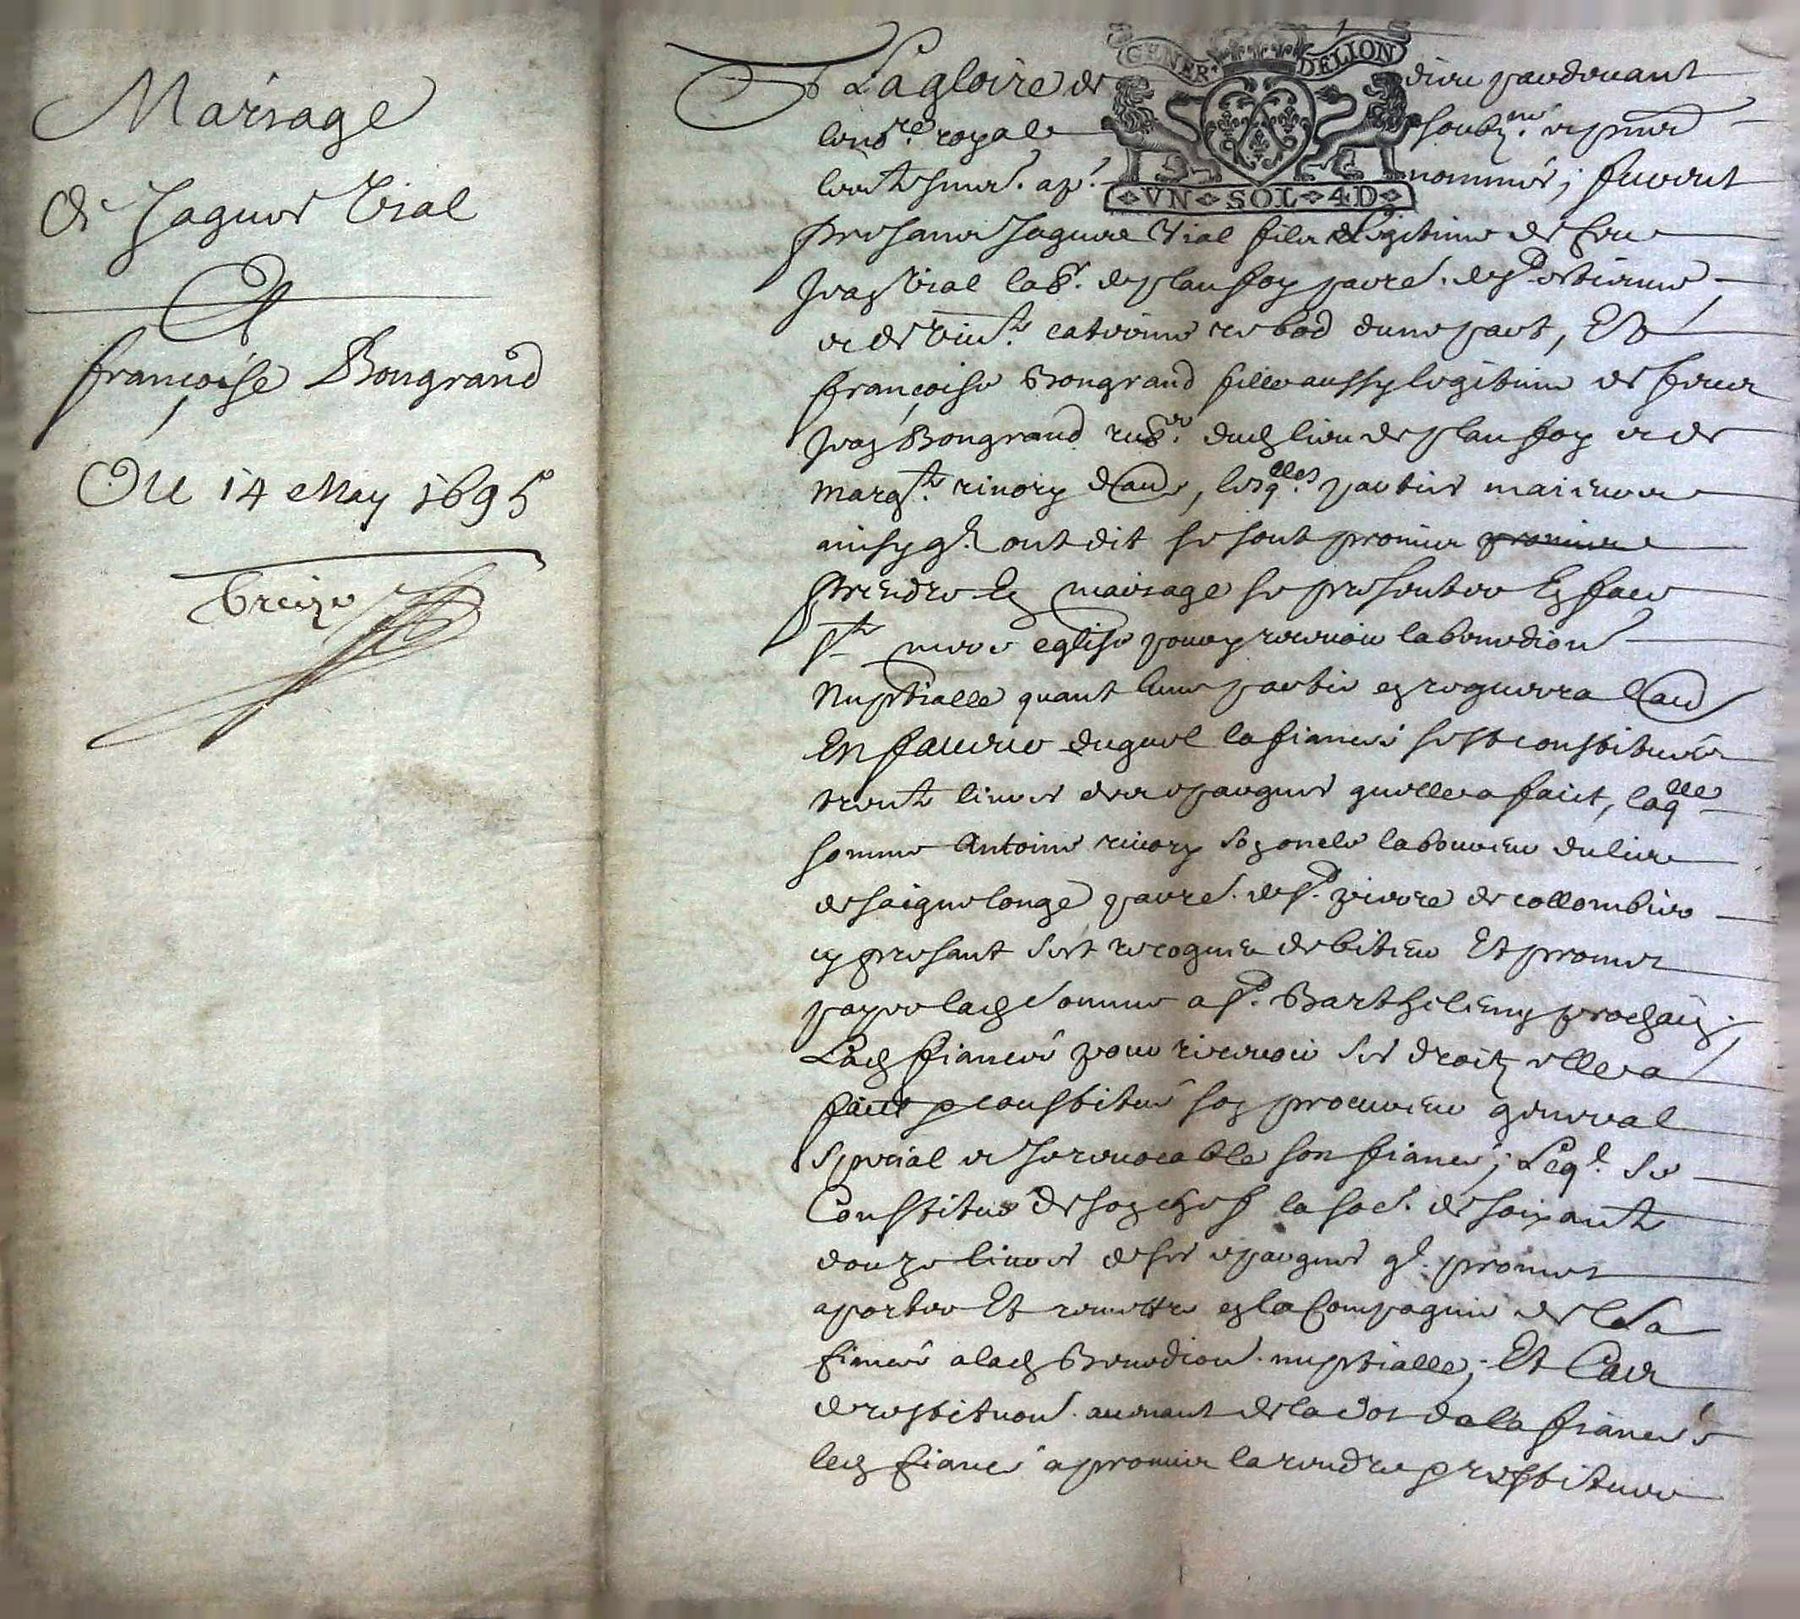 Mariage
de Jaques Vial
Et
françoise Bongrand
Du 14 May 1695
GENER. DELION
VN SOL 4D
A La gloire de dieu pardevant
le no.re royal soubz.né et pnts
les tesmi. ap. nommés; furent
presans Jaques Vial fils legitime de feu
Jean Vial lab.r de planfoy parre. de S.t estienne
et de viu.te caterine rebod dune part, Et
françoise Bongrand fille aussy legitime de feus
Jean Bongrand dud lieu de planfoy et de
marg.te rivory dautre, lesq.elles parties
ainsy q.l ont dit se sont promis promis
prendre En mariage se presenter En face
S.te mere eglise pour recevoir la benediction
Nuptialle quant lune partie en requerra l'au.
En faveur duquel la fiancée sest constituée
trente livres des epargnes quelle a faict, laq.elle
somme Antoine rivory son oncle laboureur du lieu
de saignelonge parre. de S.t pierre de collombier
cy presant sest recogneu debiteur Et promet
payer lad somme a S.t Barthelemy prochain;
Lad fiancée pour recevoir ses droitz elle a
faict & constitué son procureur general
special et Irrevocable son fiancé; Leq.l se
Constitue de son chef la so.e de soixante
douze livres de ses epargnes q.l promet
aporter Et remettre en la Compagnie de la
fiancée a lad Benediction nuptialle; Et Cas
de restitution. avenant de la dot de la fiancée
led fiancé a promis la rendre & restituer